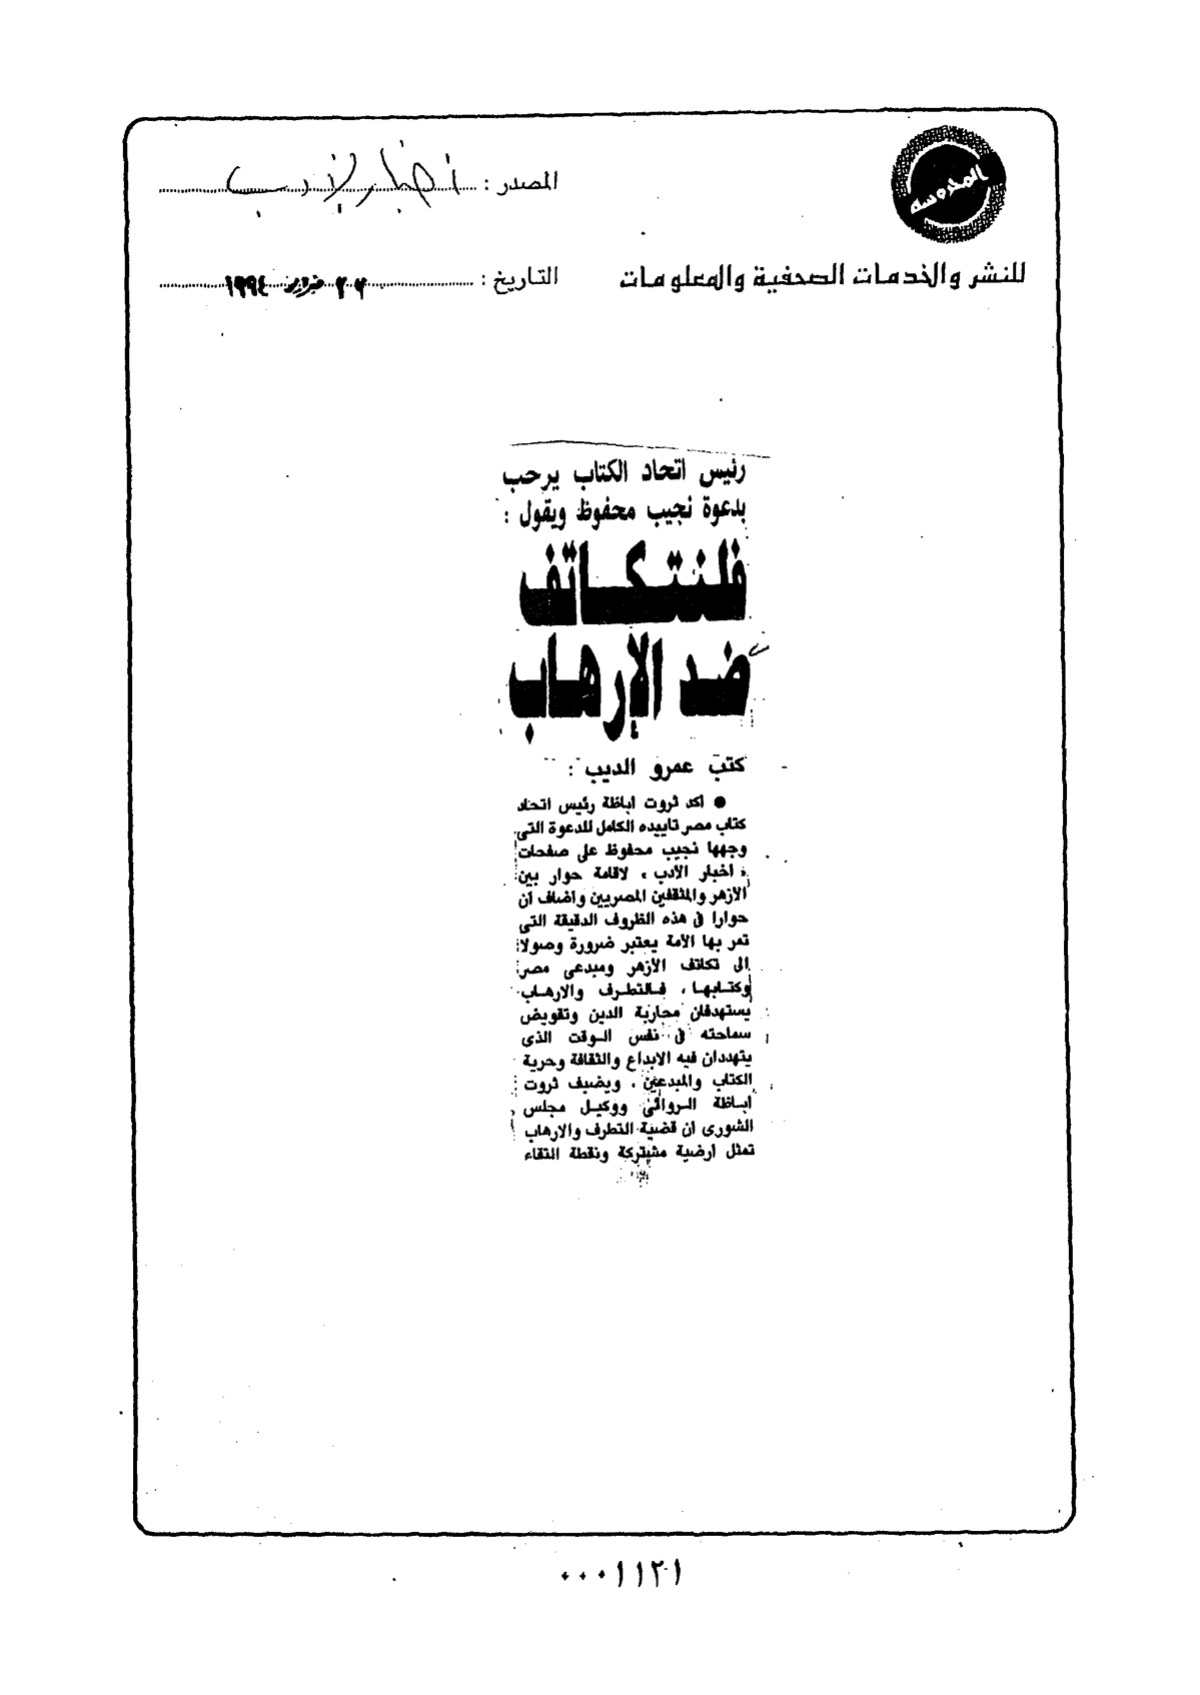 المحروسة
المصدر : أخبار الأدب
للنشر والخدمات الصحفية والمعلومات
التاريخ : فبراير ١٩٩٤
رئيس اتحاد الكتاب يرحب
بدعوة نجيب محفوظ ويقول :
فلنتكاتف
ضد الإرهاب
كتب عمرو الديب :
● اكد ثروت اباظة رئيس اتحاد
كتاب مصر تاييده الكامل للدعوة التى
وجهها نجيب محفوظ على صفحات
، اخبار الأدب ، لاقامة حوار بين
الازهر والمثقفين المصريين واضاف ان
حوارا فى هذه الظروف الدقيقة التى
تمر بها الأمة يعتبر ضرورة وصولا
الى تكاتف الازهر ومبدعى مصر
وكتابها ، فالتطرف والارهاب
يستهدفان محاربة الدين وتقويض
سماحته فى نفس الوقت الذى
يتهددان فيه الابداع والثقافة وحرية
الكتاب والمبدعين . ويضيف ثروت
اباظة الروائى ووكيل مجلس
الشورى ان قضية التطرف والارهاب
تمثل ارضية مشتركة ونقطة التقاء
٠٠٠١١٢١